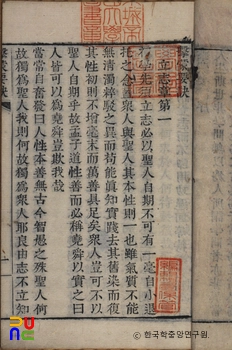 擊蒙要訣
立志章第一
初學先須立志必以聖人自期不可有一毫自小退
托之念蓋衆人與聖人其本性則一也雖氣質不能
無清濁粹駁之異而苟能眞知實踐去其舊染而復
其性初則不增毫末而萬善具足矣衆人豈可不以
聖人自期乎故孟子道性善而必稱堯舜以實之曰
人皆可以爲堯舜豈欺我哉
當常自奮發曰人性本善無古今智愚之殊聖人何
故獨爲聖人我則何故獨爲衆人耶良由志不立知
擊蒙要訣
한국학중앙연구원